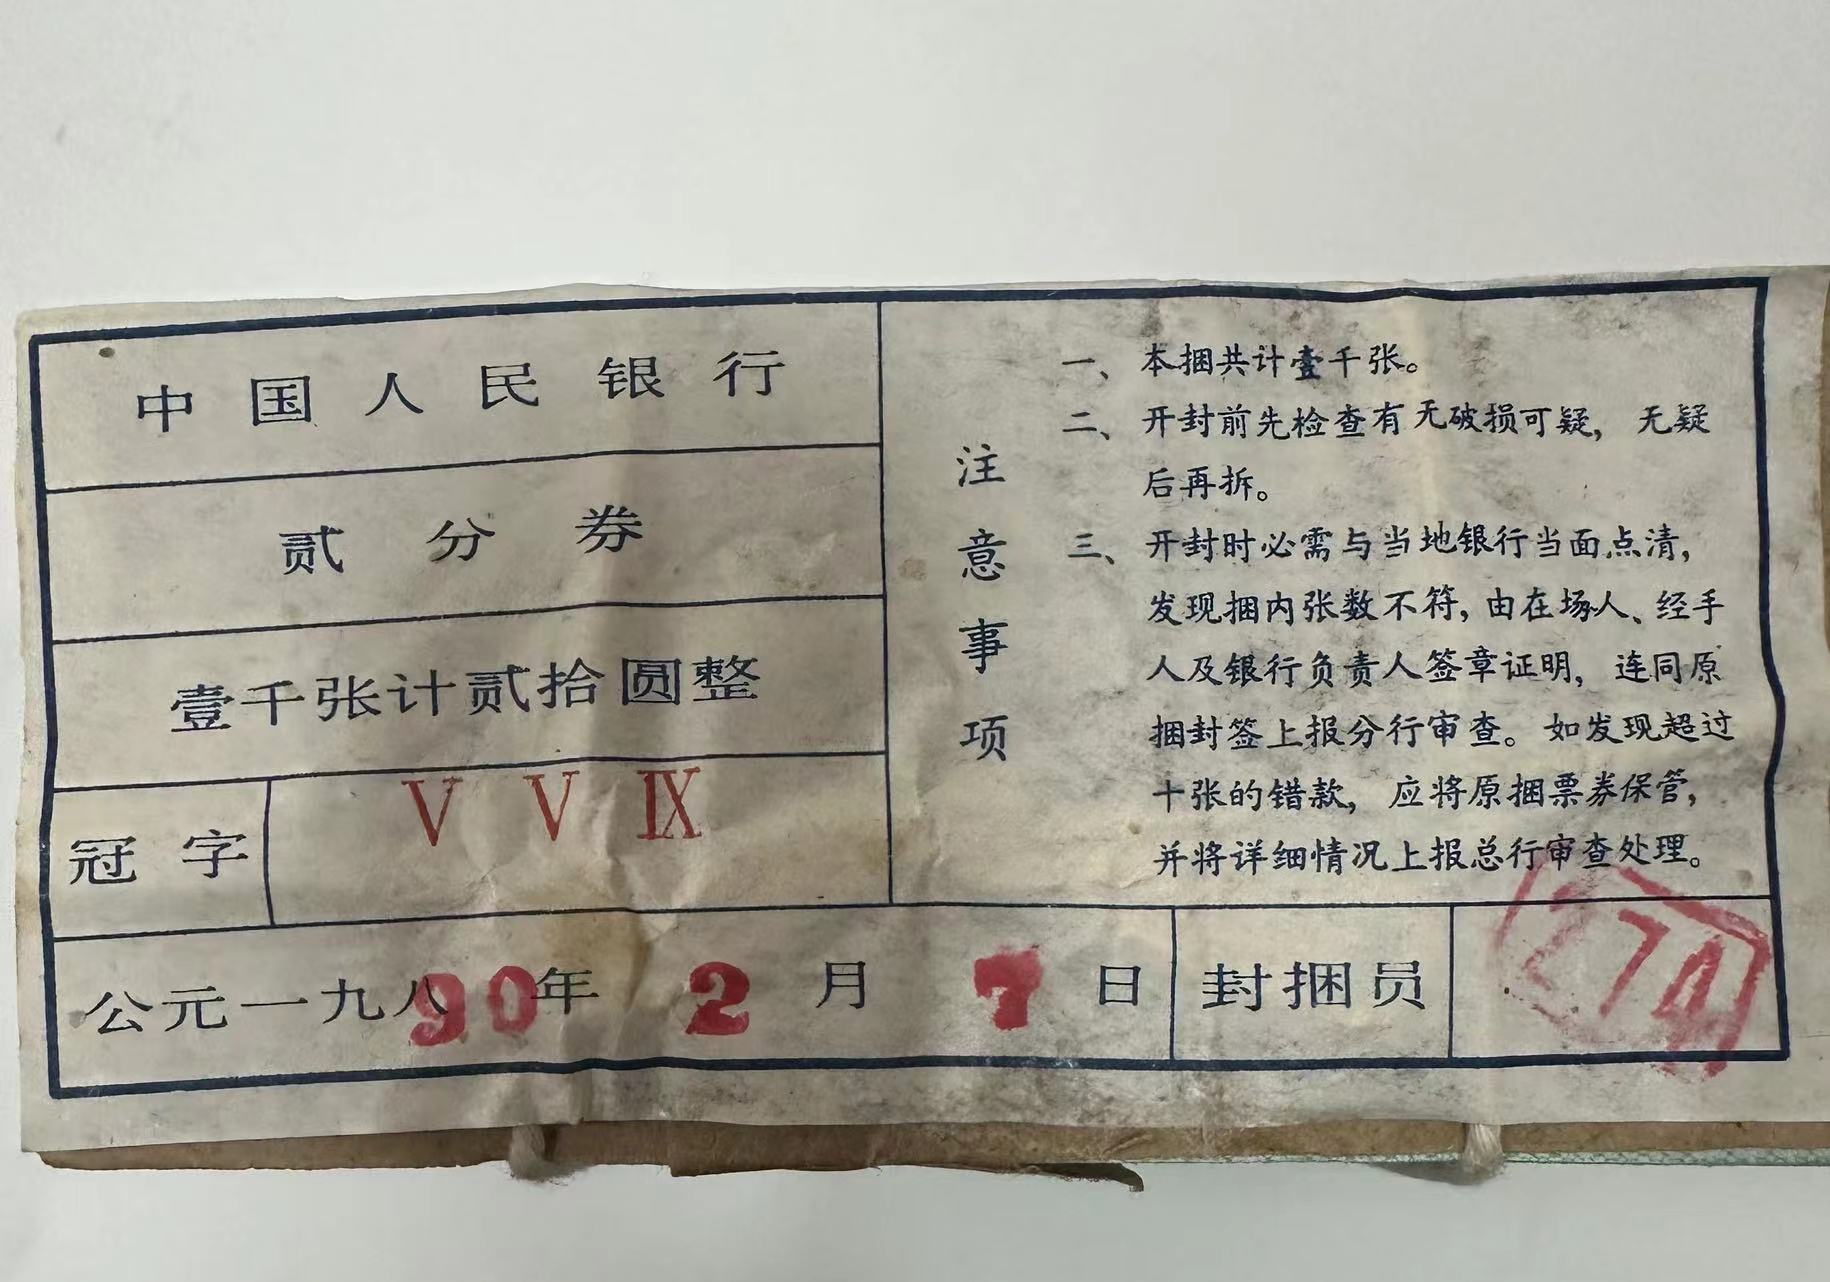 中国人民银行
贰分券
壹千张计贰拾圆整
冠字
V V IX
公元一九八90年 2 月 7 日
注意事项
一、本捆共计壹千张。
二、开封前先检查有无破损可疑，无疑
后再拆。
三、开封时必需与当地银行当面点清，
发现捆内张数不符，由在场人、经手
人及银行负责人签章证明，连同原
捆封签上报分行审查。如发现超过
十张的错款，应将原捆票券保管，
并将详细情况上报总行审查处理。
封捆员
274